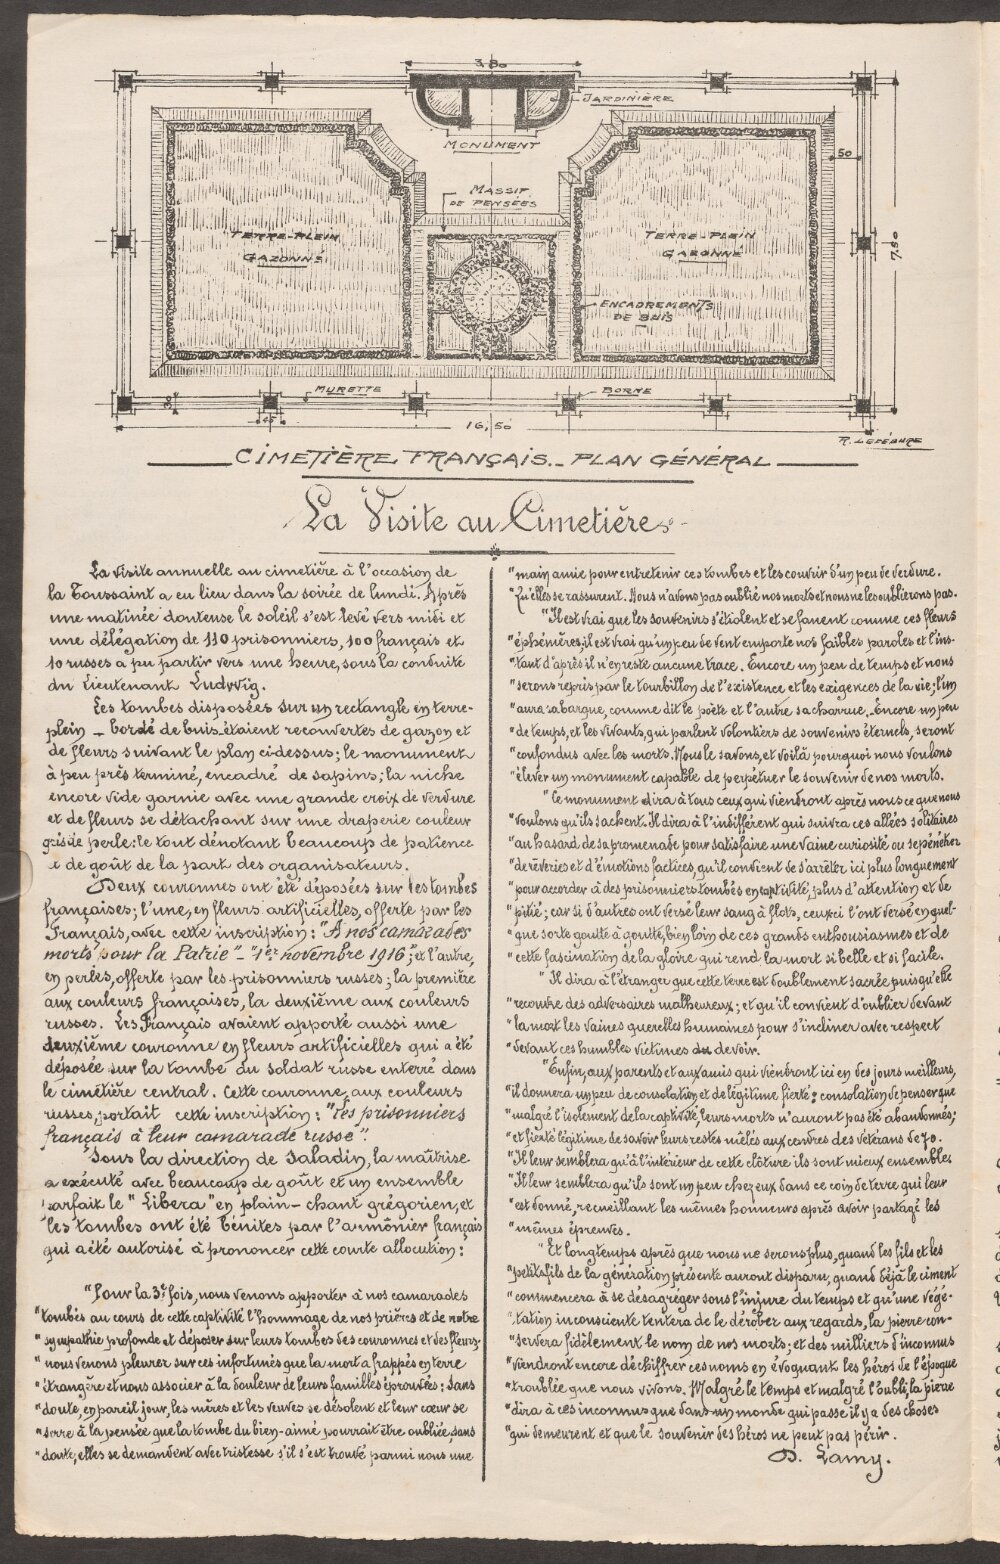 3,80
JARDINIÈRE
MONUMENT
50
MASSIF
DE PENSÉES
TERRE-PLEIN
GAZONNÉ
TERRE-PLEIN
GAZONNÉ
7,50
ENCADREMENTS
DE BUIS
MURETTE
BORNE
30
45
16,50
R. LEFÉBURE
CIMETIÈRE FRANÇAIS. - PLAN GÉNÉRAL
La Visite au Cimetière
La visite annuelle au cimetière à l'occasion de
la Toussaint a eu lieu dans la soirée de lundi. Après
une matinée douteuse le soleil s'est levé vers midi et
une délégation de 110 prisonniers, 100 français et
10 russes a pu partir vers une heure, sous la conduite
du Lieutenant Ludwig.
Les tombes disposées sur un rectangle en terre-
plein - bordé de buis étaient recouvertes de gazon et
de fleurs suivant le plan ci-dessus; le monument
à peu près terminé, encadré de sapins; la niche
encore vide garnie avec une grande croix de verdure
et de fleurs se détachant sur une draperie couleur
gris de perle: le tout dénotant beaucoup de patience
de goût de la part des organisateurs.
Deux couronnes ont été déposées sur les tombes
françaises; l'une, en fleurs artificielles, offerte par les
Français, avec cette inscription: "A nos camarades
morts pour la Patrie" - "1er novembre 1916"; et l'autre,
en perles, offerte par les prisonniers russes; la première
aux couleurs françaises, la deuxième aux couleurs
russes. Les Français avaient apporté aussi une
deuxième couronne en fleurs artificielles qui a été
déposée sur la tombe du soldat russe enterré dans
le cimetière central. Cette couronne, aux couleurs
russes, portait cette inscription: "Les prisonniers
français à leur camarade russe".
Sous la direction de Saladin, la maîtrise
a exécuté avec beaucoup de goût et un ensemble
parfait le "Libera" en plain-chant grégorien, et
les tombes ont été bénites par l'aumônier français
qui a été autorisé à prononcer cette courte allocution:
"Pour la 3e fois, nous venons apporter à nos camarades
"tombés au cours de cette captivité l'hommage de nos prières et de notre
"sympathie profonde et déposer sur leurs tombes des couronnes et des fleurs;
"nous venons pleurer sur ces infortunés que la mort a frappés en terre
"étrangère et nous associer à la douleur de leurs familles éprouvées: Sans
"doute, en pareil jour, les mères et les veuves se désolent et leur cœur se
"serre à la pensée que la tombe du bien-aimé pourrait être oubliée, sans
"doute, elles se demandent avec tristesse s'il s'est trouvé parmi nous une
"main amie pour entretenir ces tombes et les couvrir d'un peu de verdure.
"Qu'elles se rassurent. Nous n'avons pas oublié nos morts et nous ne les oublierons pas.
"Il est vrai que les souvenirs s'étiolent et se fanent comme ces fleurs
"éphémères; il est vrai qu'un peu de vent emporte nos faibles paroles et l'ins-
"tant d'après il n'en reste aucune trace. Encore un peu de temps et nous
"serons repris par le tourbillon de l'existence et les exigences de la vie; l'un
"aura sa barque, comme dit le poète et l'autre sa charrue. Encore un peu
"de temps, et les vivants, qui parlent volontiers de souvenirs éternels, seront
"confondus avec les morts. Nous le savons, et voilà pourquoi nous voulons
"élever un monument capable de perpétuer le souvenir de nos morts.
"Ce monument dira à tous ceux qui viendront après nous ce que nous
"voulons qu'ils sachent. Il dira à l'indifférent qui suivra ces allées solitaires
"au hasard de sa promenade pour satisfaire une vaine curiosité ou se pénétrer
"de rêveries et d'émotions factices, qu'il convient de s'arrêter ici plus longuement
"pour accorder à des prisonniers tombés en captivité, plus d'attention et de
"pitié; car si d'autres ont versé leur sang à flots, ceux-ci l'ont versé en quel-
"que sorte goutte à goutte, bien loin de ces grands enthousiasmes et de
"cette fascination de la gloire qui rend la mort si belle et si facile.
"Il dira à l'étranger que cette terre est doublement sacrée puisqu'elle
"recouvre des adversaires malheureux; et qu'il convient d'oublier devant
"la mort les vaines querelles humaines pour s'incliner avec respect
"devant ces humbles victimes du devoir.
"Enfin, aux parents et aux amis qui viendront ici en des jours meilleurs,
"il donnera un peu de consolation et de légitime fierté: consolation de penser que
"malgré l'isolement de la captivité, leurs morts n'auront pas été abandonnés;
"et fierté légitime de savoir leurs restes mêlés aux cendres des vétérans de 70.
"Il leur semblera qu'à l'intérieur de cette clôture ils sont mieux ensembles
"Il leur semblera qu'ils sont un peu chez eux dans ce coin de terre qui leur
"est donné, recueillant les mêmes honneurs après avoir partagé les
"mêmes épreuves.
"Et longtemps après que nous ne serons plus, quand les fils et les
"petits fils de la génération présente auront disparu, quand déjà le ciment
"commencera à se désagréger sous l'injure du temps et qu'une végé-
"tation inconsciente tentera de le dérober aux regards, la pierre con-
"servera fidèlement le nom de nos morts; et des milliers d'inconnus
"viendront encore déchiffrer ces noms en évoquant les héros de l'époque
"troublée que nous vivons. Malgré le temps et malgré l'oubli, la pierre
"dira à ces inconnus que dans un monde qui passe il y a des choses
"qui demeurent et que le souvenir des héros ne peut pas périr.
D. Lamy.